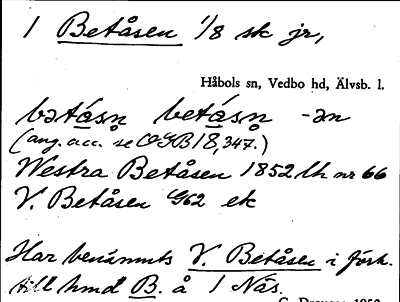 1 Betåsen 1/8 sk jr,
Håbols sn, Vedbo hd, Älvsb. l.
bətåsn betåsn -ən
(ang. acc. se OGB 18, 347.)
Westra Betåsen 1852 lh nr 66
V. Betåsen G62 ek
Har benämnts V. Betåsen i förh.
till hmd B. å 1 Näs.